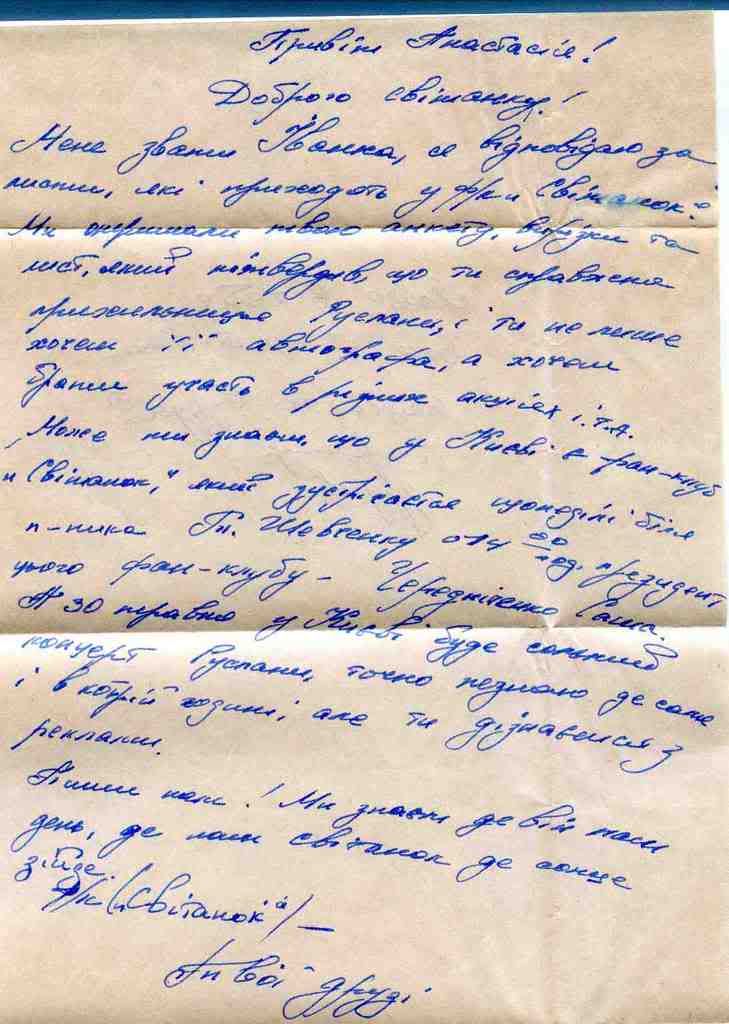 Привіт Анастасія!
Доброго світанку!
Мене звати Іванка, я відповідаю за
листи, які приходять у ф/к „Світанок".
Ми отримали твою анкету, вирізки та
лист, який підтвердив, що ти справжня
прихильниця Руслани, і ти не лише
хочеш її автографа, а хочеш
брати участь в різних акціях і.т.д.
Може ти знаєш, що у Києві є фан-клуб
„Світанок", який зустрічається щонеділі біля
п-ника Т. Шевченку о 14 00 год. президент
цього фан-клубу - Чередніченко Саша.
А 30 травня у Києві буде сольний
концерт Руслани, точно незнаю де саме
і в котрій годині, але ти дізнаєшся з
реклами.
Пиши нам! Ми знаєм де він той
день, де наш світанок де сонце
зійде.
Ф/к („Світанок") —
Твої друзі